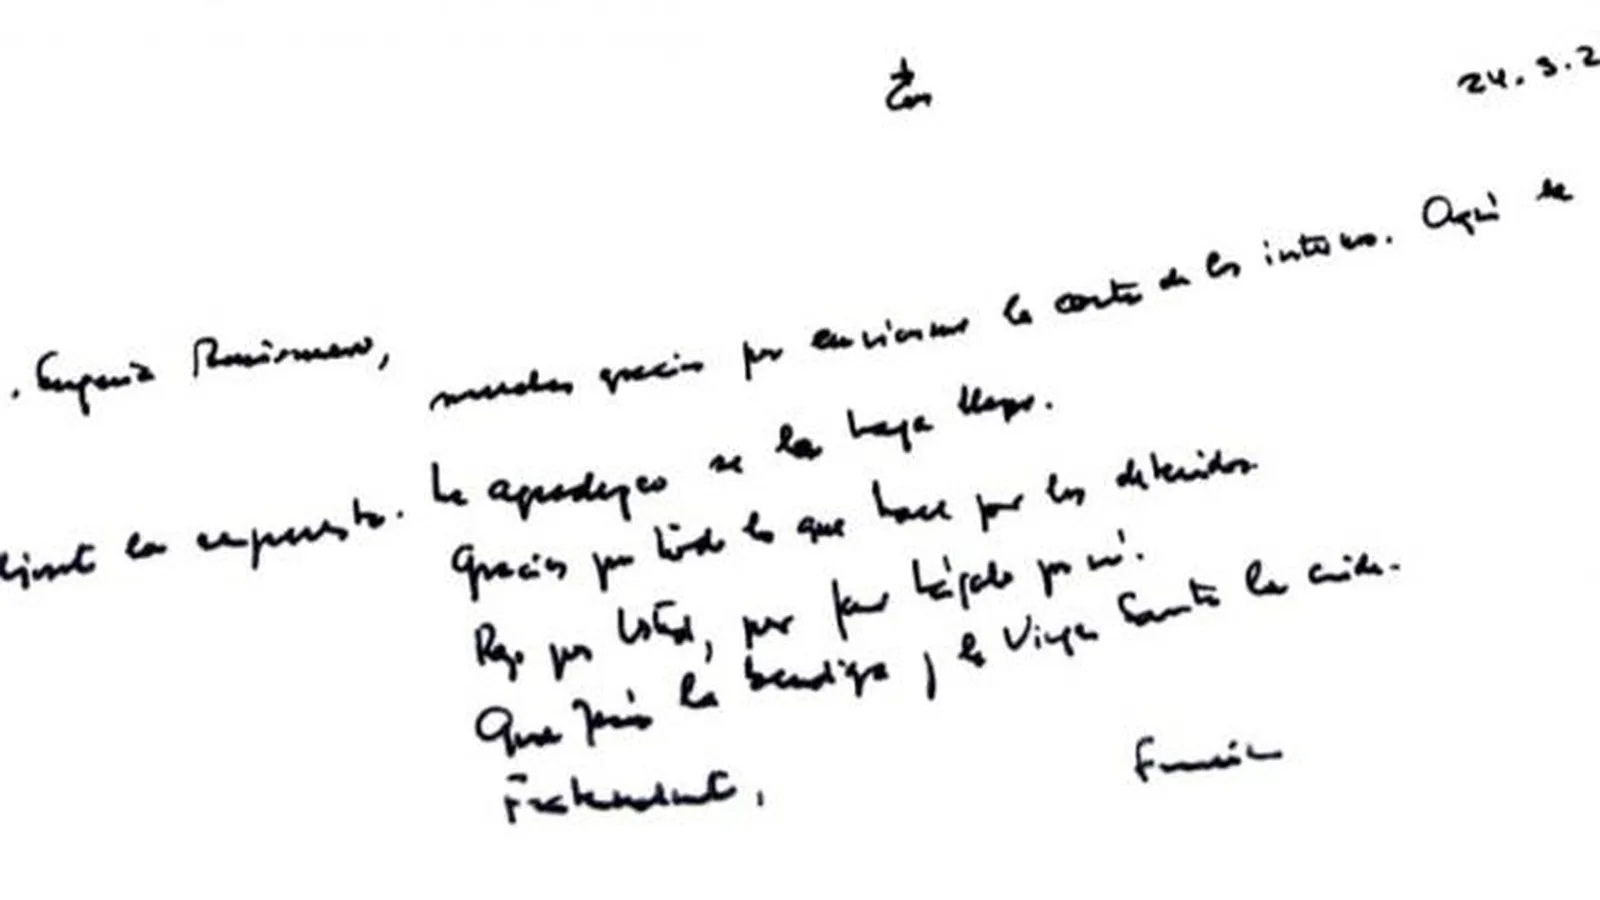 24.9.2
. Eugenia
muchas gracias por enviarme la carta de los internos. Aquí le
adjunto la respuesta. Le agradezco se la haga llegar.
Gracias por todo lo que hace por los detenidos.
Rezo por usted, por favor hágalo por mí.
Que Jesús la bendiga y la Virgen Santa la cuide.
Fraternalmente,
Francisco